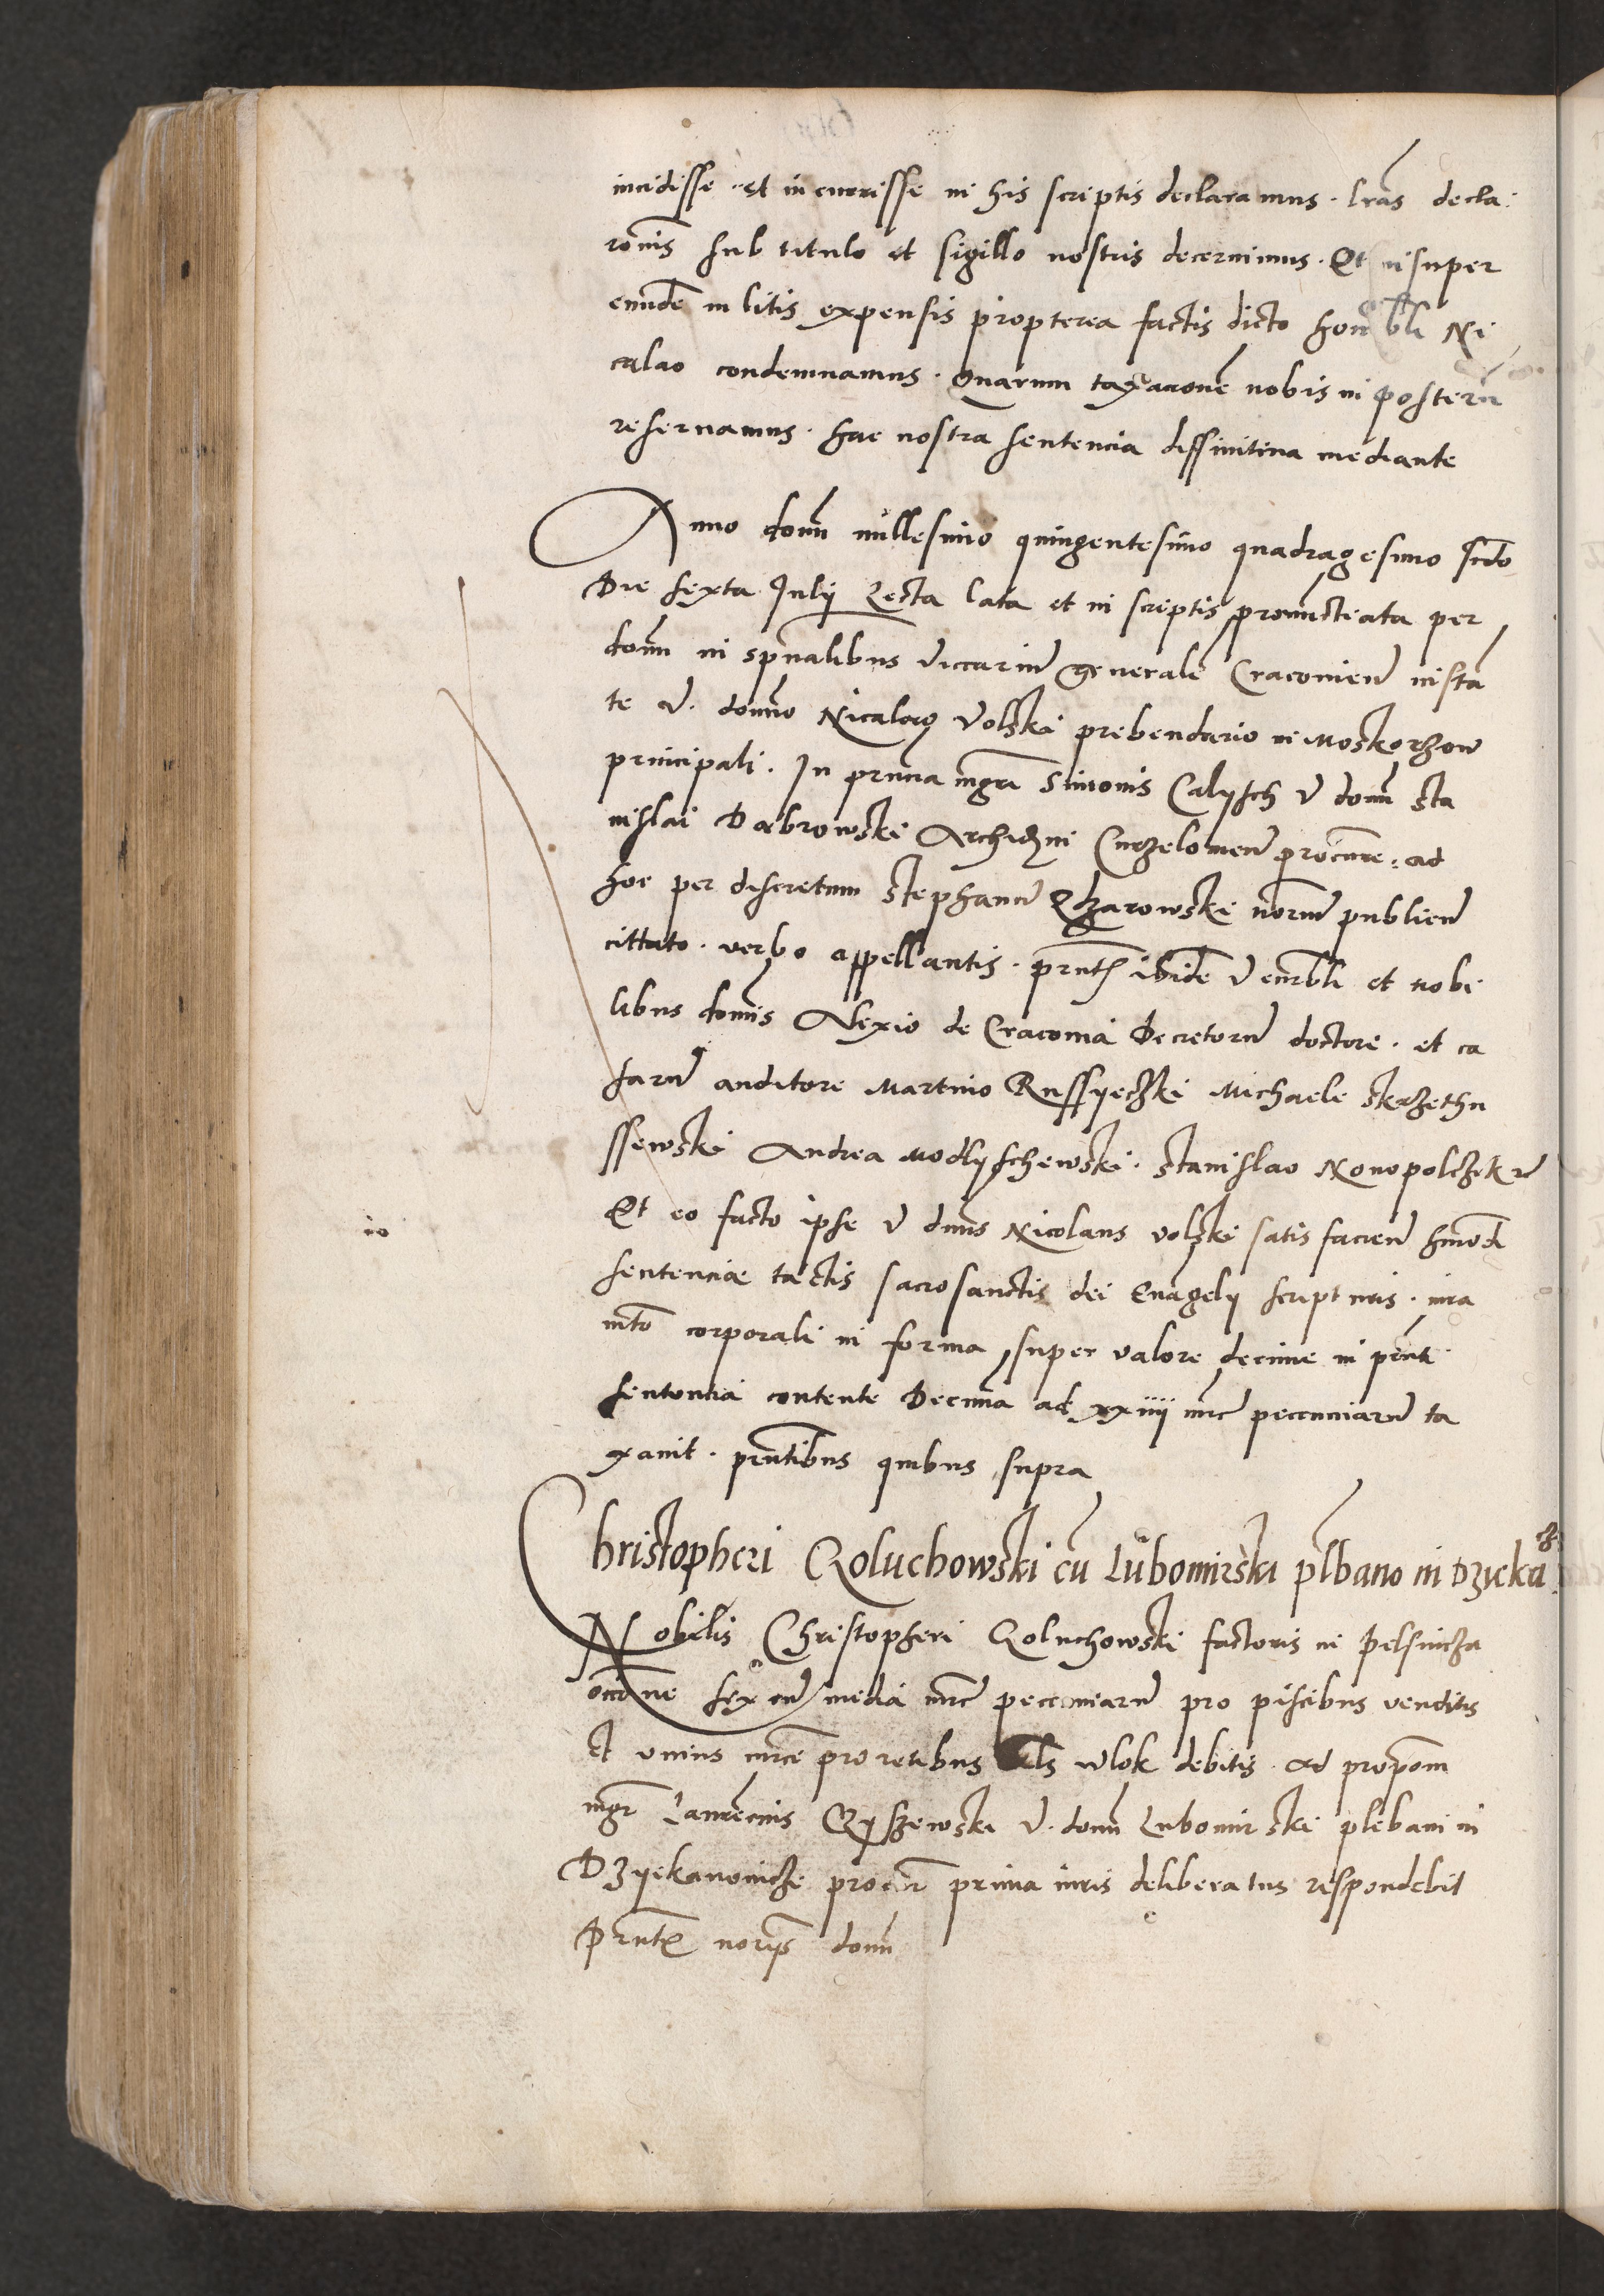 incidisse et incurrisse in his scriptis declaramus. lras decla
ronis sub titulo et sigillo nostris decernimus. Et insuper
eundē in litis expensis propterea factis dicto honbli Ni
calao condemnamus. Quarum taxacionē nobis in posterū
reservamus. hac nostra sentencia diffinitiva mediante
Anno domī millesimo quingentesimo quadragesimo scdo
Die sexta Julij Lecta lata et in scriptis pronuncciata per
domī in spūalibus viccarium generalē Cracovien instā
te v. domno Nicalao Volski prebendario in Moskorzow
principali. In pruna mgri Simonis Calijsch v domī Sta
nislai Dabrowski Archidni Curzelovien procuren. ad
hoc per discretum Stephanū Ozarowski norium publicū
cittato. verbo appellantis. pruntᷓ ibidē v enrbli et nobi
libus domīs Alexio de Cracovia Decretorū doctore. et ca
sarū auditore Martino Russyeczki Michaele Skrzethu
ssewski Andrea Modlyschewski. Stanislao Nouopolczekū
Et eo facto ipse v dnus Nicolaus volski satis facien hmōdi
sentencie tactis sacrosanctis dei Evāgelij scripturis. iura
mto corporali in forma super valore decime in prnti
sententia contente Decimā ad xxiiij mrc peccuniarū ta
xavit. prntibus quibus supra
io
Christopheri Goluchowski cū Lubomirski plbano in Dzieka
Nobilis Christopheri Goluchowski factoris in Pelsnicza
occōne sex cū media mrc peccuniarū pro piscibus venditis
et unius mrce pro retibus als wlok debitis. ad propōm
mgri Laurencij Gyszewski v. domī Lubomirski plebani in
Dzyekanovicze procur prima iuris deliberatus respondebit
Prntᷓ norijs domī